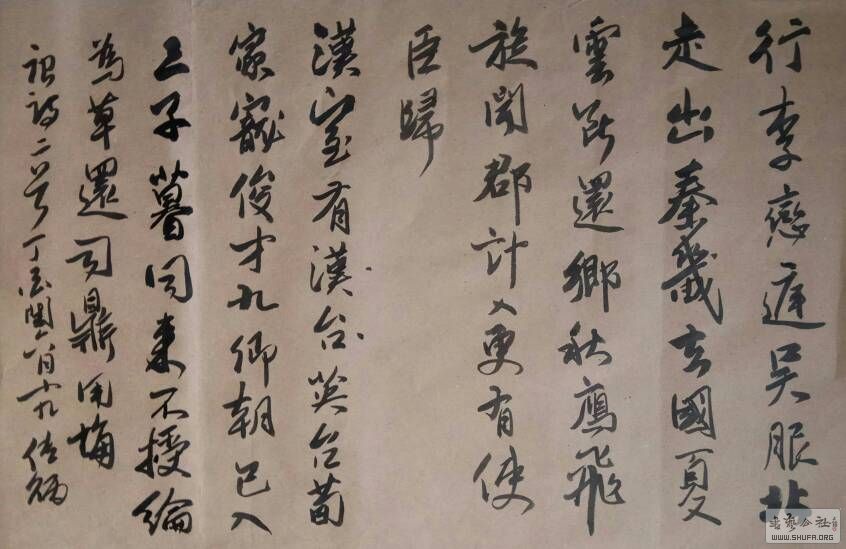 行李戀遲吳服北
走出秦畿去國夏
雲斷還鄉秋鷹飛
旋聞郡計入更有使
臣歸
漢室有漢台英台荀
家寵俊才九卿朝已入
三子暮同來不授綸
為草還司鼎用梅
詩二首丁酉閏六月十九
書藝公社
WWW.SHUFA.ORG